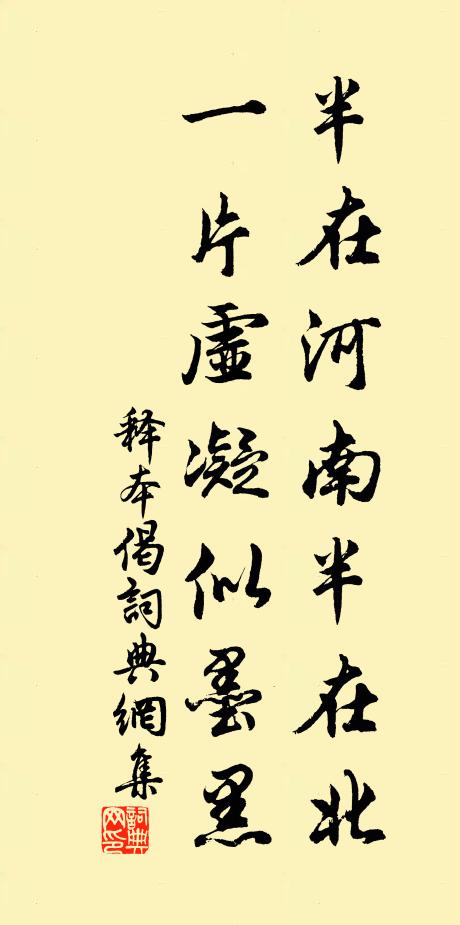 半在河南半在北
一片虛凝似墨黑
釋本偈詞典網集
詞典網印